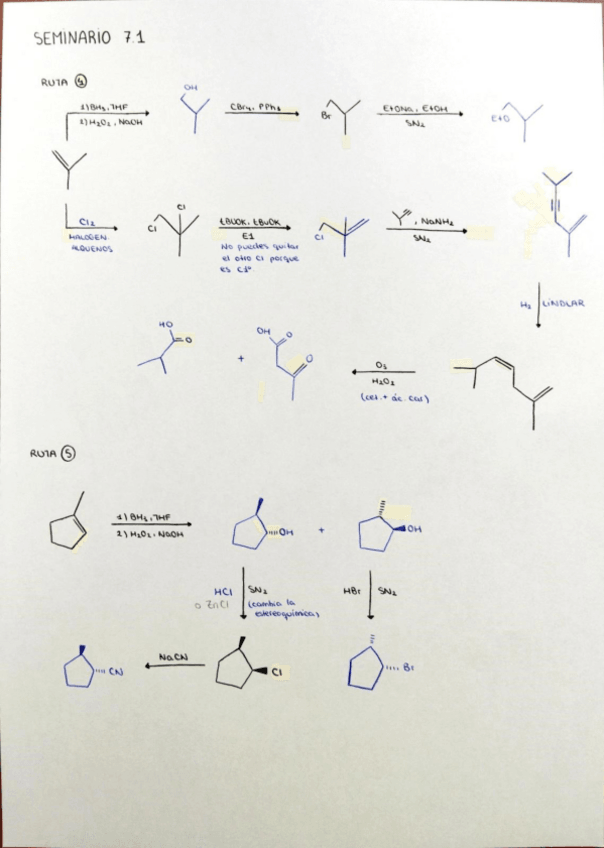 SEMINARIO 7.1
RUTA 4
1) BH3, THF
2) H2O2, NaOH
OH
CBr4, PPh3
Br
EtONa, EtOH
SN2
EtO
Cl2
HALOGEN
ALQUENOS
Cl
Cl
tBuOK, tBuOK
E1
No puedes quitar
el otro Cl porque
es C1º
Cl
, NaNH2
SN2
H2 LINDLAR
O3
H2O2
(cet. + ác. car)
HO
O
+
OH
O
O
RUTA 5
1) BH3, THF
2) H2O2, NaOH
OH
+
OH
HCl SN2
o ZnCl (cambia la
estereoquímica)
HBr SN2
CN
NaCN
Cl
Br